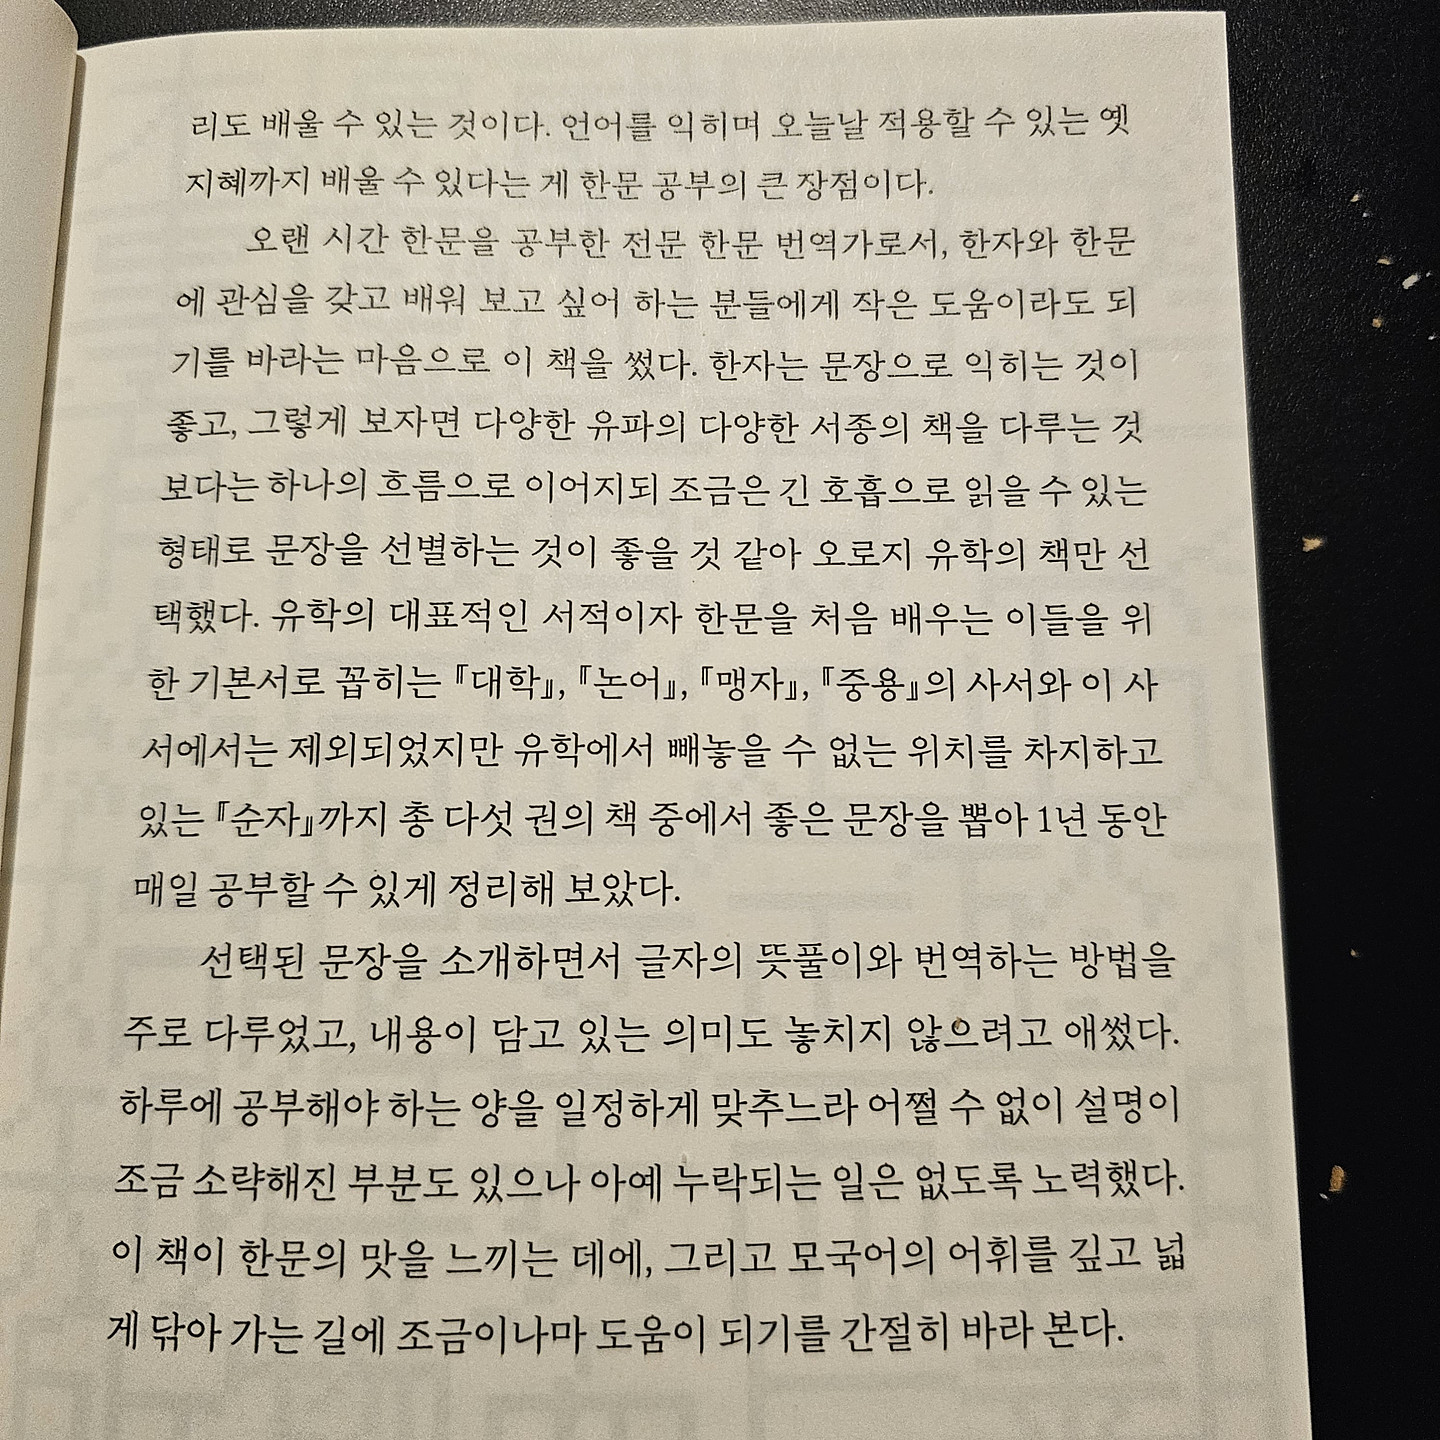 리도 배울 수 있는 것이다. 언어를 익히며 오늘날 적용할 수 있는 옛
지혜까지 배울 수 있다는 게 한문 공부의 큰 장점이다.
오랜 시간 한문을 공부한 전문 한문 번역가로서, 한자와 한문
에 관심을 갖고 배워 보고 싶어 하는 분들에게 작은 도움이라도 되
기를 바라는 마음으로 이 책을 썼다. 한자는 문장으로 익히는 것이
좋고, 그렇게 보자면 다양한 유파의 다양한 서종의 책을 다루는 것
보다는 하나의 흐름으로 이어지되 조금은 긴 호흡으로 읽을 수 있는
형태로 문장을 선별하는 것이 좋을 것 같아 오로지 유학의 책만 선
택했다. 유학의 대표적인 서적이자 한문을 처음 배우는 이들을 위
한 기본서로 꼽히는 『대학』, 『논어』, 『맹자』, 『중용』의 사서와 이 사
서에서는 제외되었지만 유학에서 빼놓을 수 없는 위치를 차지하고
있는 『순자』까지 총 다섯 권의 책 중에서 좋은 문장을 뽑아 1년 동안
매일 공부할 수 있게 정리해 보았다.
선택된 문장을 소개하면서 글자의 뜻풀이와 번역하는 방법을
주로 다루었고, 내용이 담고 있는 의미도 놓치지 않으려고 애썼다.
하루에 공부해야 하는 양을 일정하게 맞추느라 어쩔 수 없이 설명이
조금 소략해진 부분도 있으나 아예 누락되는 일은 없도록 노력했다.
이 책이 한문의 맛을 느끼는 데에, 그리고 모국어의 어휘를 깊고 넓
게 닦아 가는 길에 조금이나마 도움이 되기를 간절히 바라 본다.